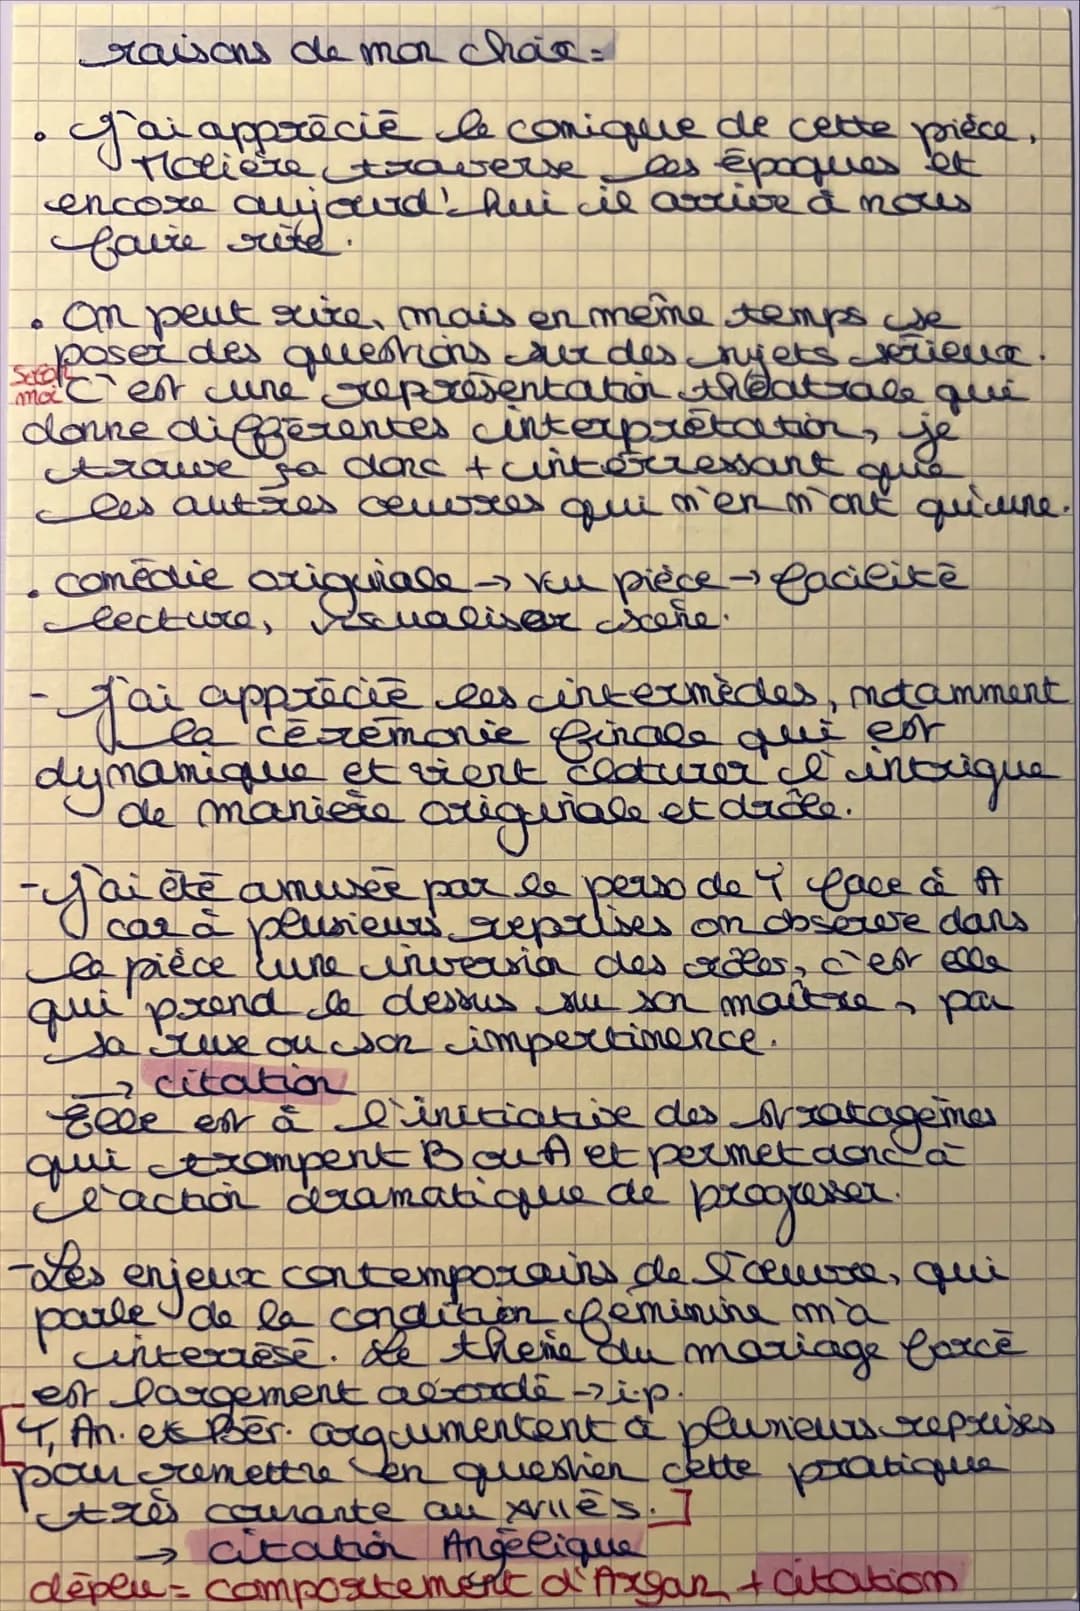 raisons de mon choix =
• J'ai apprécié le comique de cette pièce,
Molière traverse les époques et
encore aujourd'hui il arrive à nous
faire rire.
• On peut rire, mais en même temps se
poser des questions sur des sujets sérieux.
selon moi C'est une représentation théâtrale qui
donne différentes interprétation, je
trouve ça donc + intérressant que
les autres oeuvres qui n'en n'ont qu'une.
• comédie originale → vu pièce → facilité
lecture, visualiser scène.
- J'ai apprécié les intermèdes, notamment
la cérémonie finale qui est
dynamique et vient cloturer l'intrigue
de manière originale et drôle.
- J'ai été amusée par le perso de T face à A
car à plusieurs reprises on observe dans
la pièce une inversion des rôles, c'est elle
qui prend le dessus su son maître, par
sa ruse ou son impertinence.
→ citation
Elle est à l'initiative des stratagèmes
qui trompent B ou A et permet donc à
l'action dramatique de progresser.
- Les enjeux contemporains de l'oeuvre, qui
parle de la condition féminine m'a
interrésé. Le thème du mariage forcé
est largement abordé → i.p.
[T, An. et Bér. argumentent à plusieurs reprises
pour remettre en question cette pratique
très courante au XVIIès.]
→ citation Angélique
déplu = comportement d'Argan + citation